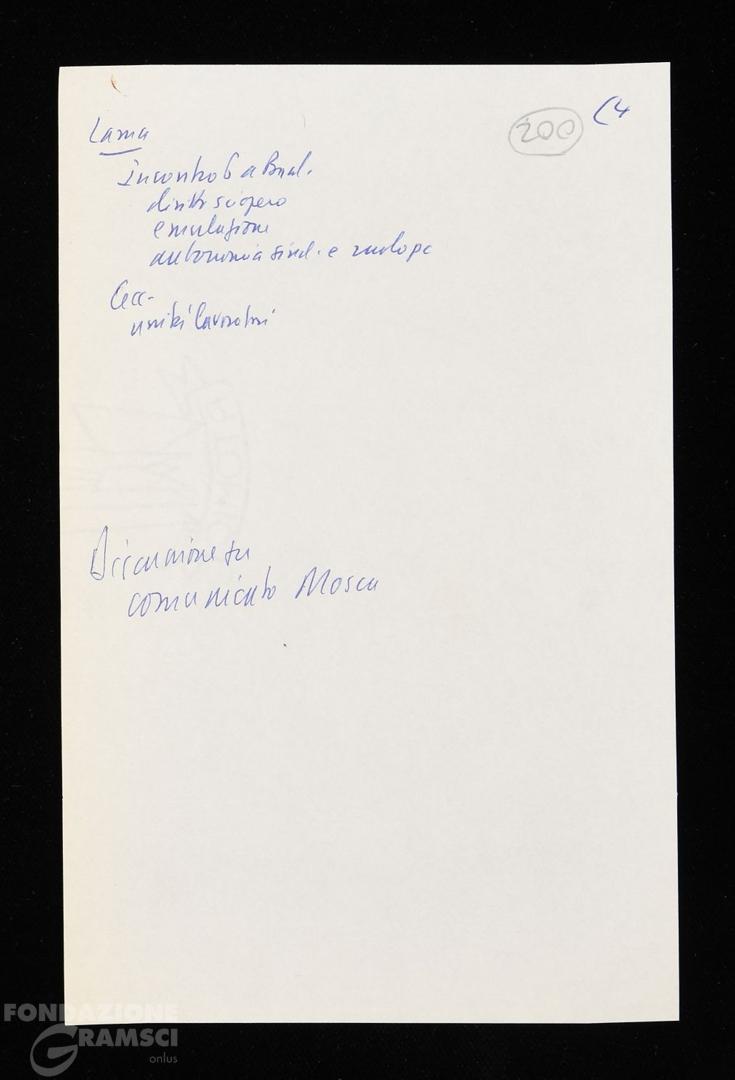 200
Lama
Incontro
diritti sciopero
emulazione
autonomia sind. e
Cec-
unità lavoratori
Discussione su
comunicato Mosca
FONDAZIONE
GRAMSCI
onlus